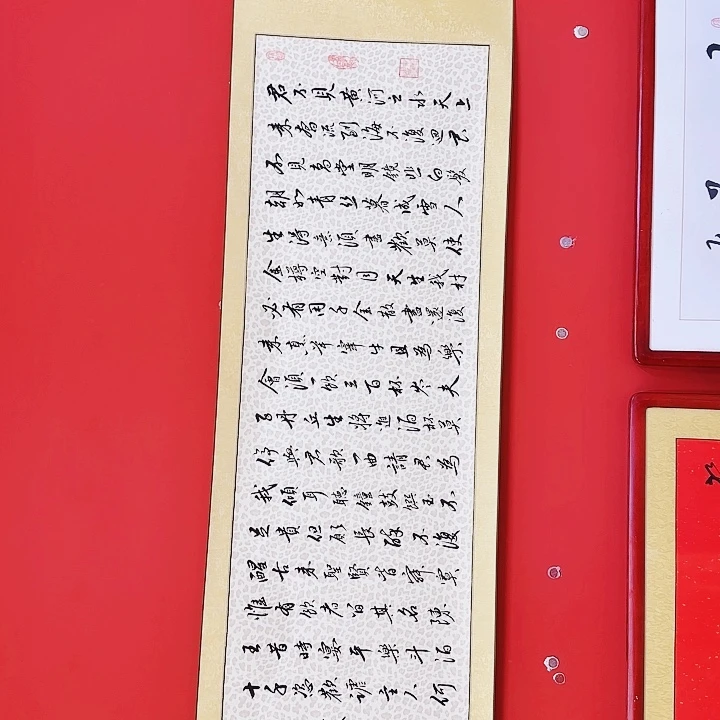 君不見黃河之水天上
來奔流到海不復迴君
不見高堂明鏡悲白髮
朝如青絲暮成雪人
生得意須盡歡莫使
金樽空對月天生我材
必有用千金散盡還復
來烹羊宰牛且為樂
會須一飲三百杯岑夫
子丹丘生將進酒杯莫
停與君歌一曲請君為
我傾耳聽鐘鼓饌玉不
足貴但願長醉不復
醒古來聖賢皆寂寞
惟有飲者留其名陳
王昔時宴平樂斗酒
十千恣歡謔主人何